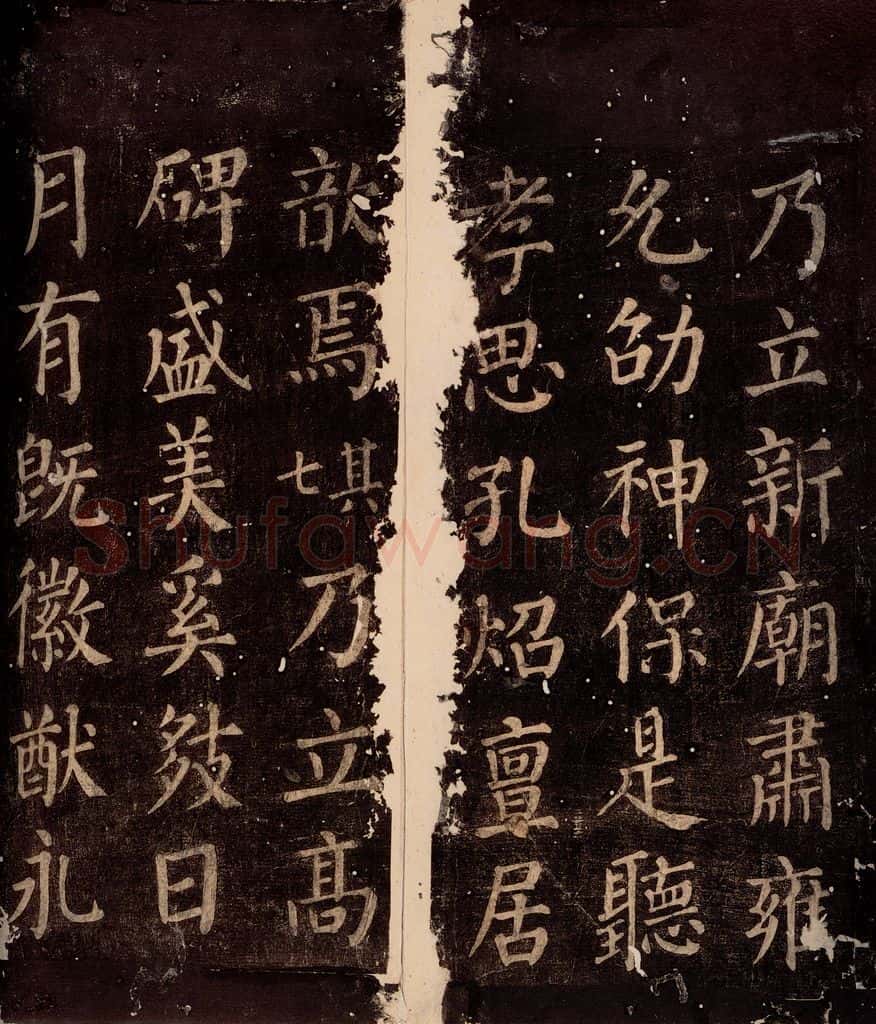 乃立新廟肅雍
允劭神保是聽
孝思孔炤亶居
歆焉其七乃立髙
碑盛美奚斁日
月有既徽猷永
Shufawang.CN